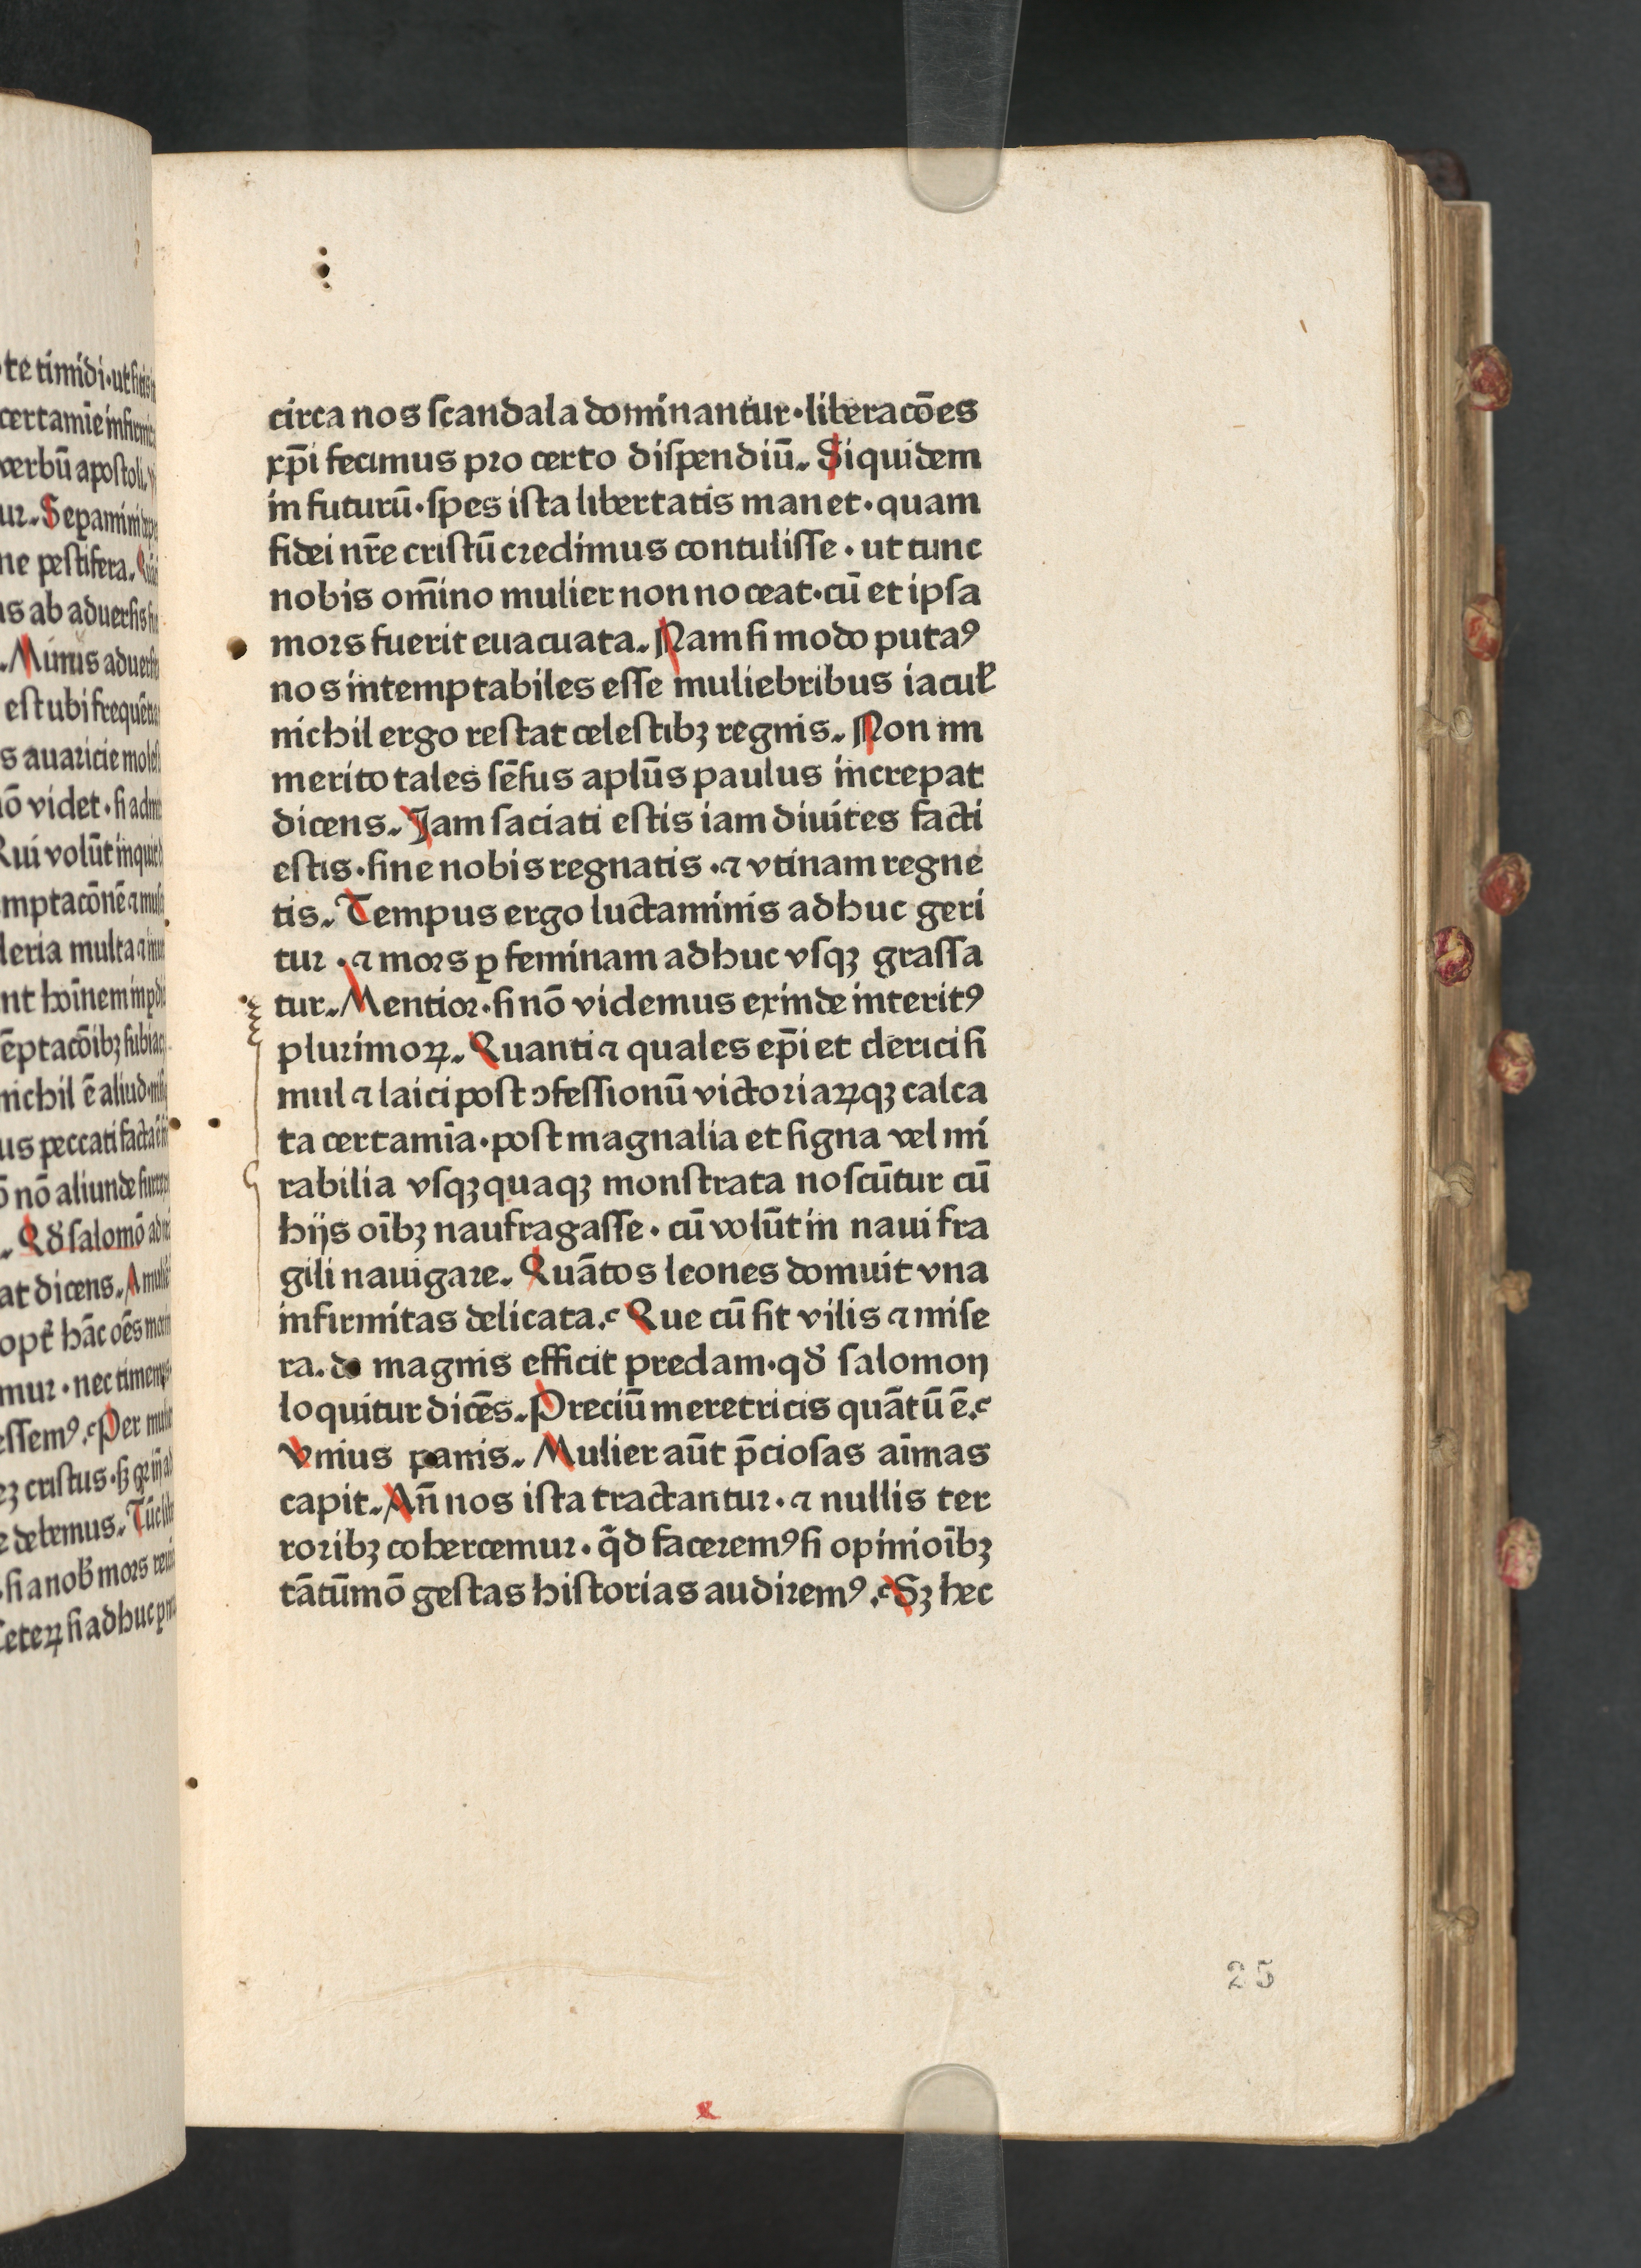 te timidi·ut
certamīe
verbū apostoli.
ur. Sepamini
ne pestifera.
us ab aduersis
Minus
est ubi frequē
s auaricie
nō videt·si
Qui volūt inquit
mptacōnē ⁊
leria multa ⁊
nt hoīnem
ēptacōibꝫ
nichil ē aliud
us peccati facta
ō nō aliunde
. Qđ salomō
at dicens. A
hāc oēs
mur·nec
essemꝰ. Per
cristus·sꝫ
debemus.
si a nob mors
Ceteꝝ si adhuc
circa nos scandala dominantur·liberacōes
xp̄i fecimus pro certo dispendiū. Siquidem
in futurū·spes ista libertatis manet·quam
fidei nr̄e cristū credimus contulisse·ut tunc
nobis om̄ino mulier non noceat·cū et ipsa
mors fuerit euacuata. Nam si modo putaꝰ
nos intemptabiles esse muliebribus iacul̓
nichil ergo restat celestibꝫ regnis. Non im
merito tales sēsus aplūs paulus increpat
dicens. Jam saciati estis iam diuites facti
estis·sine nobis regnatis·⁊ vtinam regne
tis. Tempus ergo luctaminis adhuc geri
tur·⁊ mors ꝑ feminam adhuc vsqꝫ grassa
tur. Mentior·si nō videmus exinde interitꝰ
plurimoꝝ. Quanti ⁊ quales ep̄i et clerici si
mul ⁊ laici post ↄfessionū victoriaꝝqꝫ calca
ta certamīa·post magnalia et signa vel mi
rabilia vsqꝫquaqꝫ monstrata noscūtur cū
hijs oībꝫ naufragasse·cū volūt in naui fra
gili nauigare. Quātos leones domuit vna
infirmitas delicata. Que cū sit vilis ⁊ mise
ra. de magnis efficit predam·qđ salomon
loquitur dicēs. Preciū meretricis quātū ē.
Vnius panis. Mulier aūt p̄ciosas aīmas
capit. An̄ nos ista tractantur·⁊ nullis ter
roribꝫ cohercemur·q̄d faceremꝰ si opinioībꝫ
tātūmō gestas historias audiremꝰ. Sꝫ hec
25